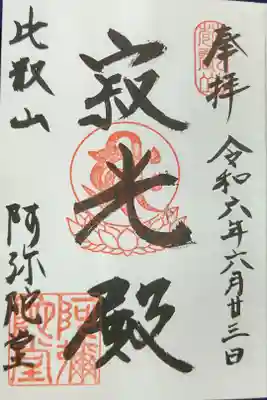 奉拝
令和六年六月廿三日
寂光殿
比叡山
阿弥陀堂
阿彌陀堂